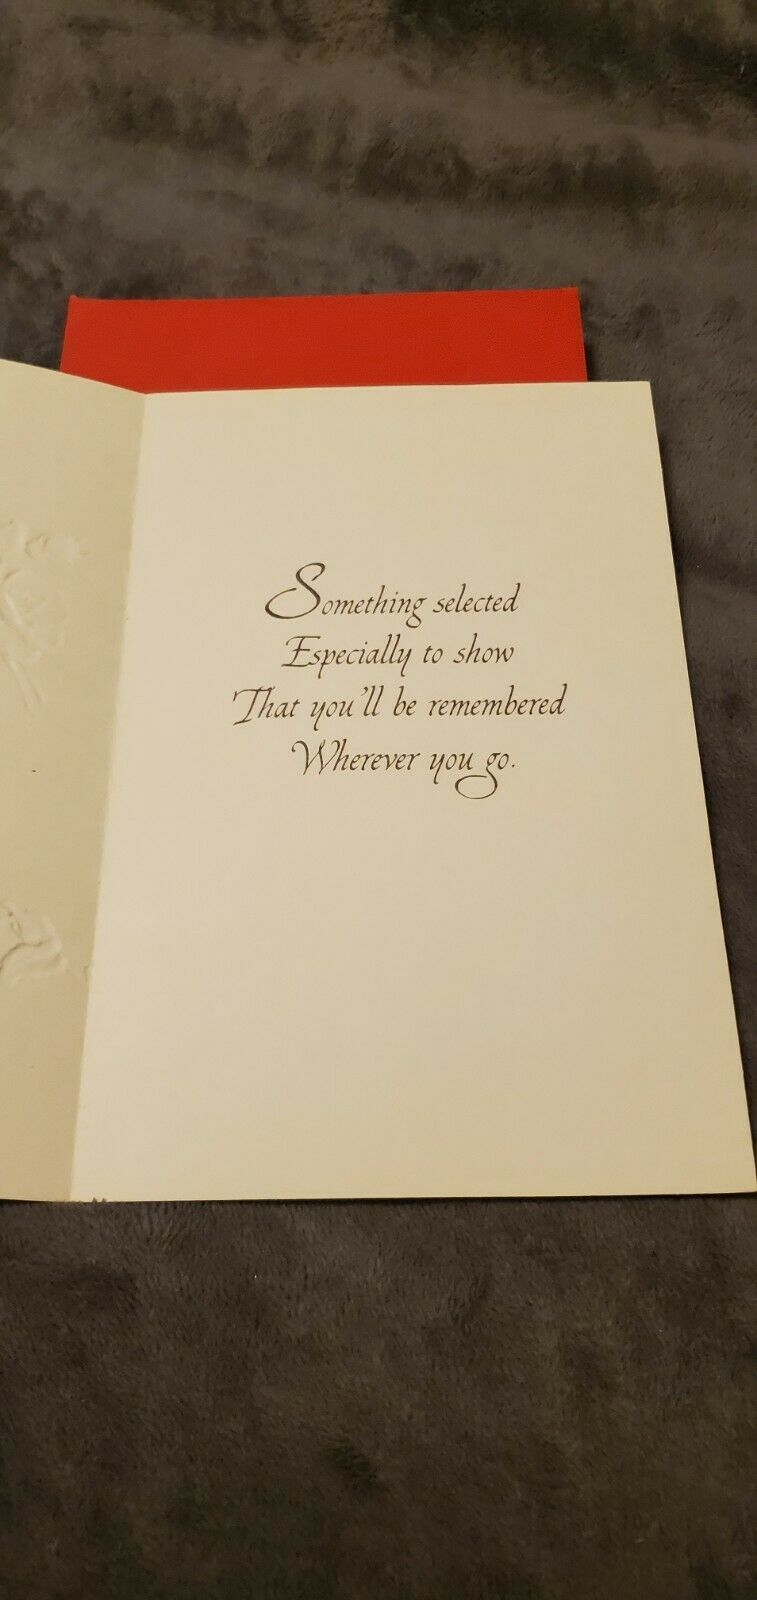 Something selected
Especially to show
That you'll be remembered
Wherever you go.